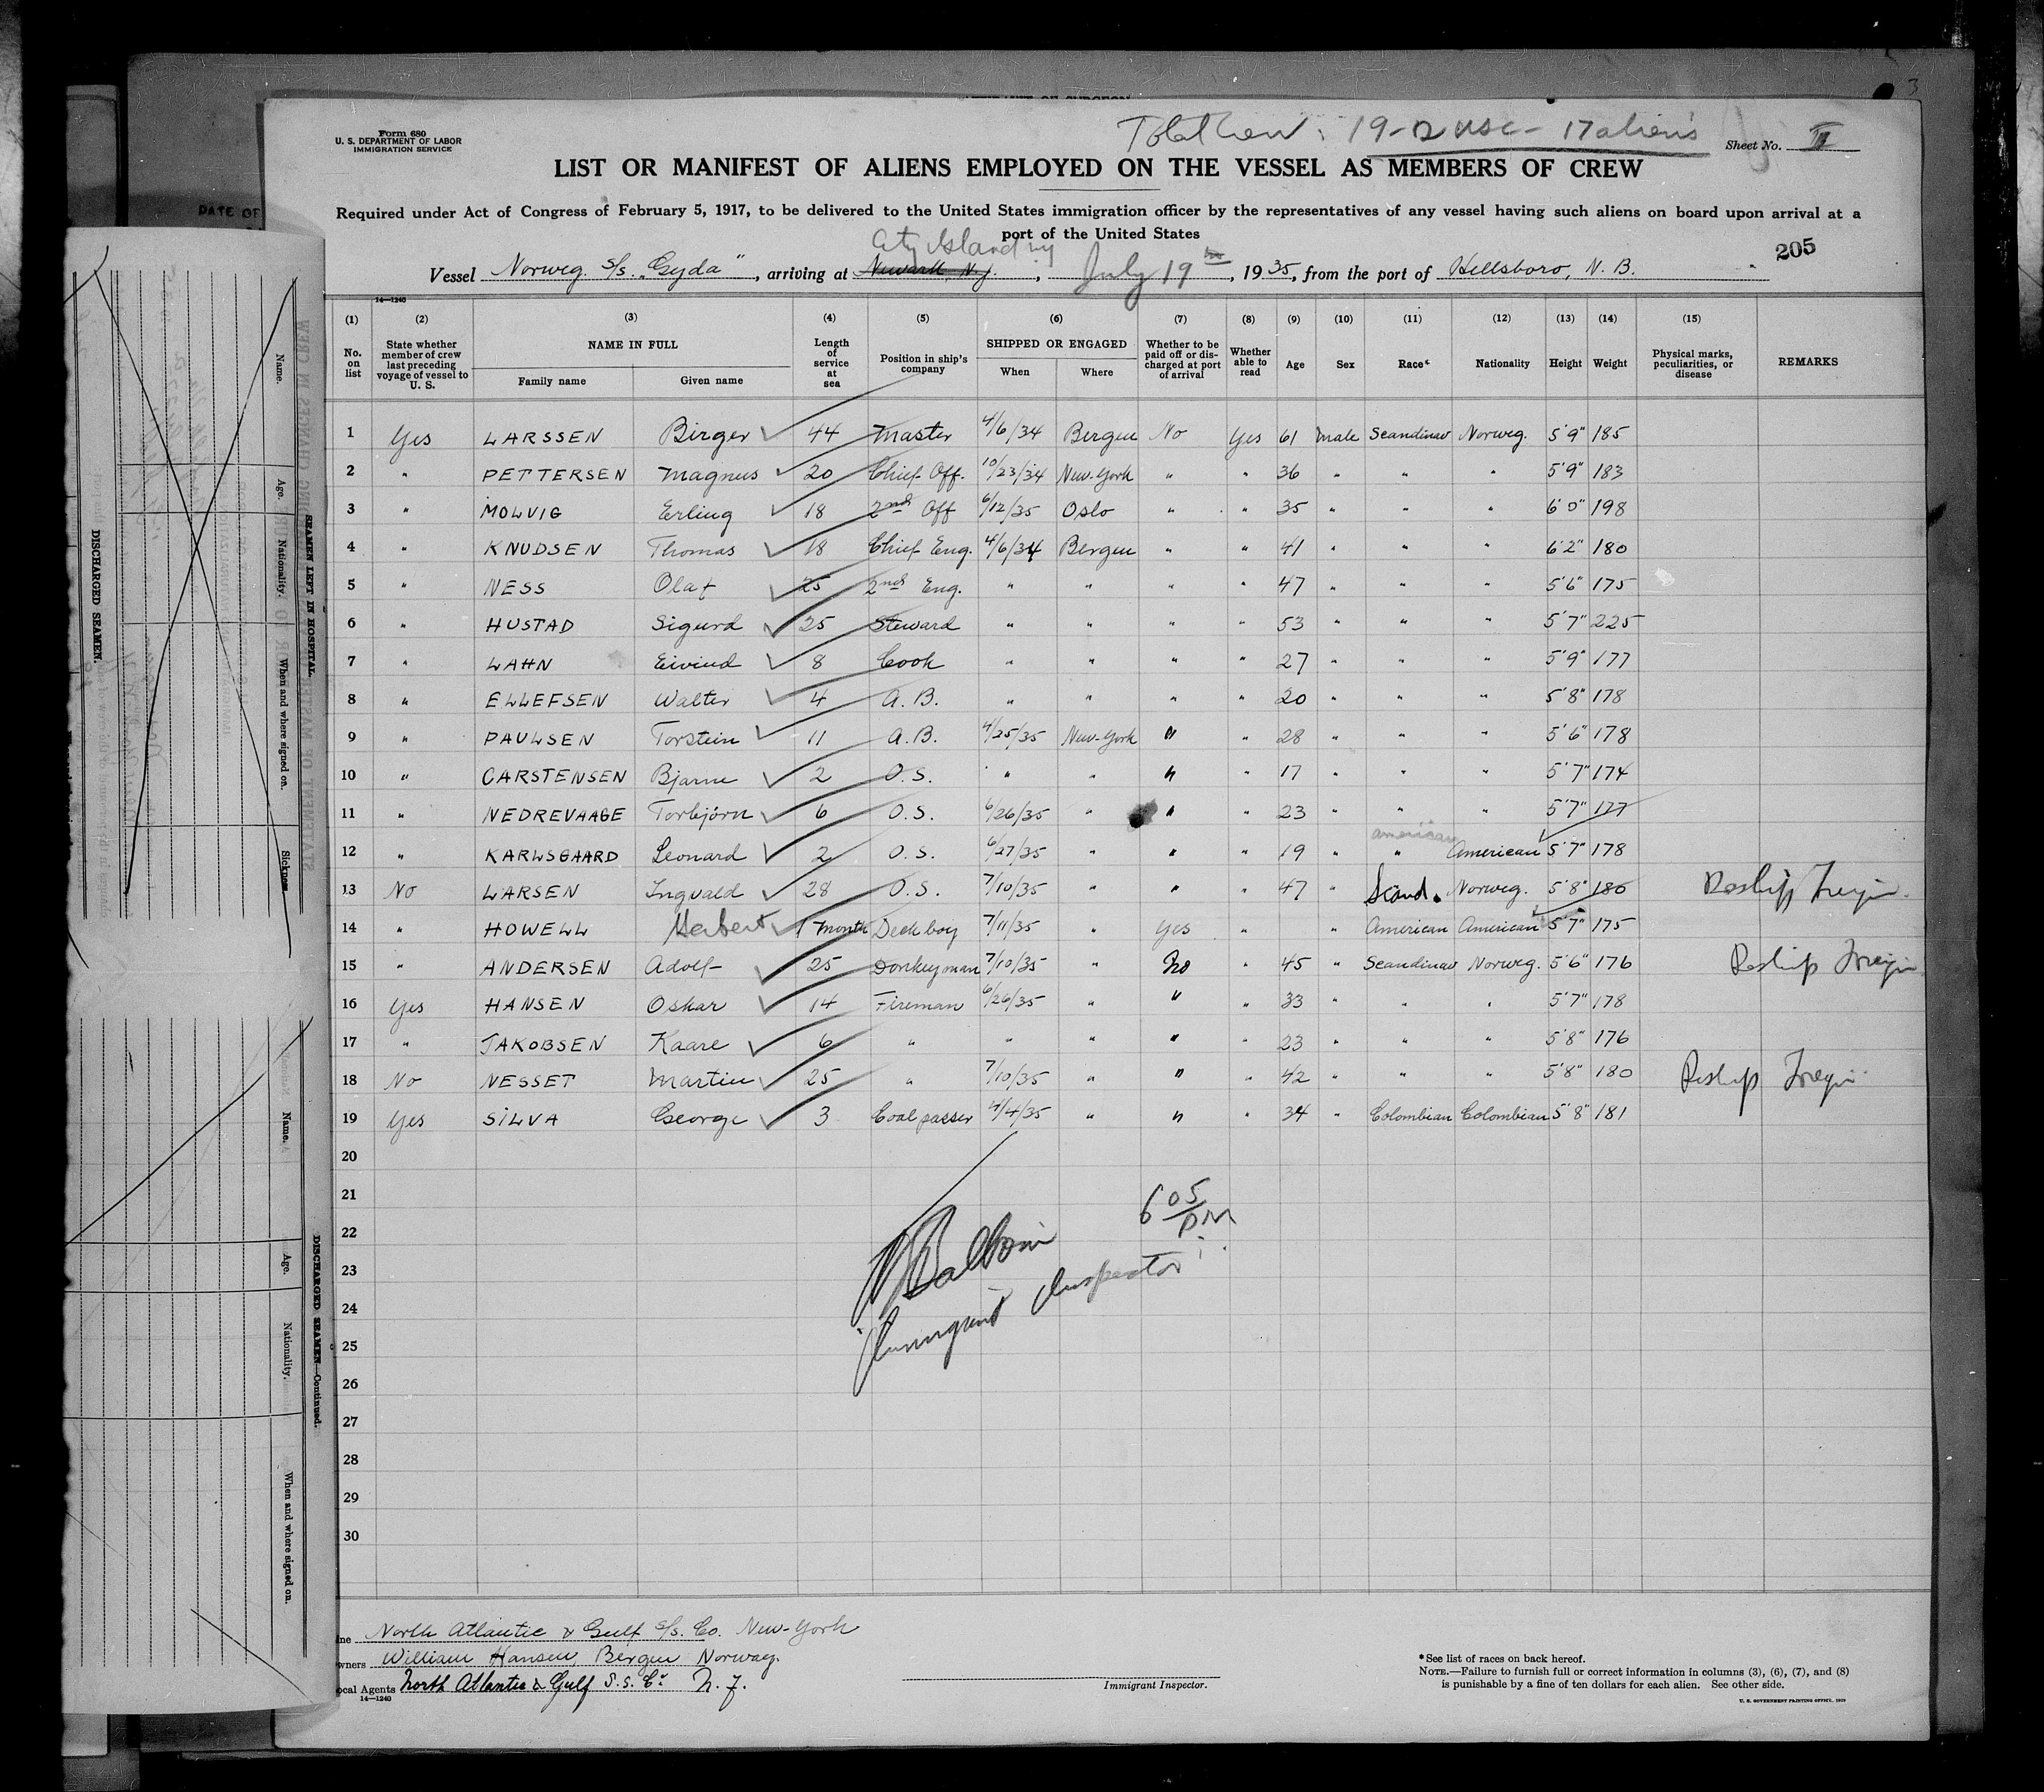 3
Form 680
U. S. DEPARTMENT OF LABOR
IMMIGRATION SERVICE
Total Crew: 19 - 2 USC - 17 aliens
Sheet No. II
LIST OR MANIFEST OF ALIENS EMPLOYED ON THE VESSEL AS MEMBERS OF CREW
Required under Act of Congress of February 5, 1917, to be delivered to the United States immigration officer by the representatives of any vessel having such aliens on board upon arrival at a
port of the United States
205
City Island NY
Vessel Norweg. S/s. "Gyda", arriving at Newark, N.J., July 19 th, 1935, from the port of Hillsboro, N. B.
14—1240
(1) (2) (3) (4) (5) (6) (7) (8) (9) (10) (11) (12) (13) (14) (15)
No. on list | State whether member of crew last preceding voyage of vessel to U. S. | NAME IN FULL Family name Given name | Length of service at sea | Position in ship's company | SHIPPED OR ENGAGED When Where | Whether to be paid off or discharged at port of arrival | Whether able to read | Age | Sex | Race* | Nationality | Height | Weight | Physical marks, peculiarities, or disease | REMARKS
1 Yes LARSSEN Birger 44 Master 4/6/34 Bergen No Yes 61 Male Scandinav Norweg. 5'9" 185
2 " PETTERSEN Magnus 20 Chief Off. 10/23/34 New-York " " 36 " " " 5'9" 183
3 " MOLVIG Erling 18 2nd Off 6/12/35 Oslo " " 35 " " " 6'0" 198
4 " KNUDSEN Thomas 18 Chief Eng. 4/6/34 Bergen " " 41 " " " 6'2" 180
5 " NESS Olaf 25 2nd Eng. " " " " 47 " " " 5'6" 175
6 " HUSTAD Sigurd 25 Steward " " " " 53 " " " 5'7" 225
7 " LAHN Eivind 8 Cook " " " " 27 " " " 5'9" 177
8 " ELLEFSEN Walter 4 A.B. " " " " 20 " " " 5'8" 178
9 " PAULSEN Torstein 11 A.B. 4/25/35 New-York " " 28 " " " 5'6" 178
10 " CARSTENSEN Bjarne 2 O.S. " " " " 17 " " " 5'7" 174
11 " NEDREVAAGE Torbjørn 6 O.S. 6/26/35 " " " 23 " " " 5'7" 177
american
12 " KARLSGAARD Leonard 2 O.S. 6/27/35 " " " 19 " " American 5'7" 178
13 No LARSEN Ingvald 28 O.S. 7/10/35 " " " 47 " Scand. Norweg. 5'8" 180 Reship Freign
14 " HOWELL Herbert 1 month Deck boy 7/11/35 " Yes " " American American 5'7" 175
15 " ANDERSEN Adolf 25 Donkeyman 7/10/35 " No " 45 " Scandinav Norweg. 5'6" 176 Reship Freign
16 Yes HANSEN Oskar 14 Fireman 6/26/35 " " " 33 " " " 5'7" 178
17 " JAKOBSEN Kaare 6 " " " " " 23 " " " 5'8" 176
18 No NESSET Martin 25 " 7/10/35 " " " 42 " " " 5'8" 180 Reship Freign
19 Yes SILVA George 3 Coal passer 4/4/35 " " " 34 " Colombian Colombian 5'8" 181
20
21
22
23
24
25
26
27
28
29
30
6 05 PM
Baldwin
Immigrant Inspector
North Atlantic & Gulf S/s. Co. New-York
wners William Hansen, Bergen Norway.
ocal Agents North Atlantic & Gulf S.S. Co. N. J.
14—1240
Immigrant Inspector.
*See list of races on back hereof.
NOTE.—Failure to furnish full or correct information in columns (3), (6), (7), and (8)
is punishable by a fine of ten dollars for each alien. See other side.
U. S. GOVERNMENT PRINTING OFFICE
DATE OF
SEAMEN LEFT IN HOSPITAL.
Name.
Age.
Nationality.
When and where signed on.
Sickness.
DISCHARGED SEAMEN.
DISCHARGED SEAMEN—Continued.
Name.
Age.
Nationality.
When and where signed on.